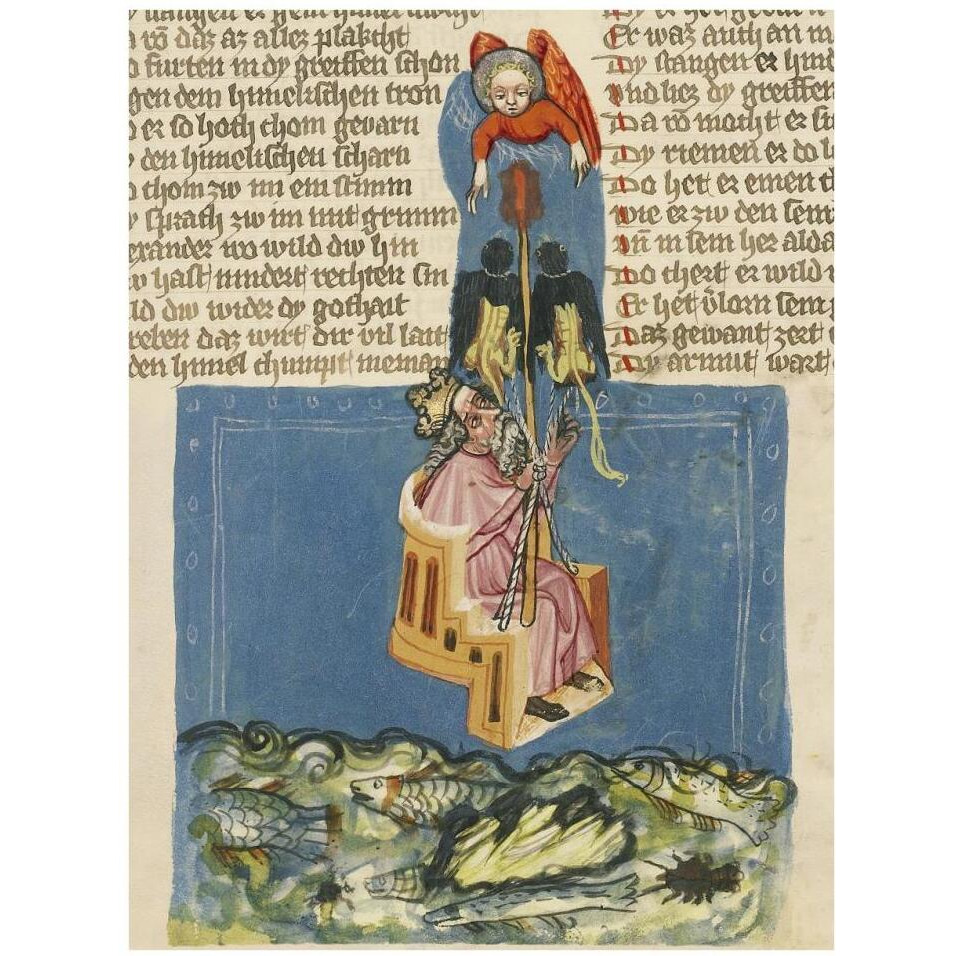 vō daz az allez
furten in dy greiffen schon
gen dem himelischen tron
er so hoch chom gevarn
den himelischen scharn
chom zw im ein stimm
sprach zw im mit grimm
exander wo wild dw hin
hast nindert rechten sin
ld dw wider dy gothait
reben daz wirt dir vil lait
den himel chumpt nieman
Er waz auch an
Dy stangen er
vnd liez dy greiffen
Da vō macht er
Dy riemen er do
Do het er einen
wie er zw den sein
vn̄ in sein her alda
Do chert er wild
Er het v̊lorn sein
Daz gewant zert
Dy armut wart